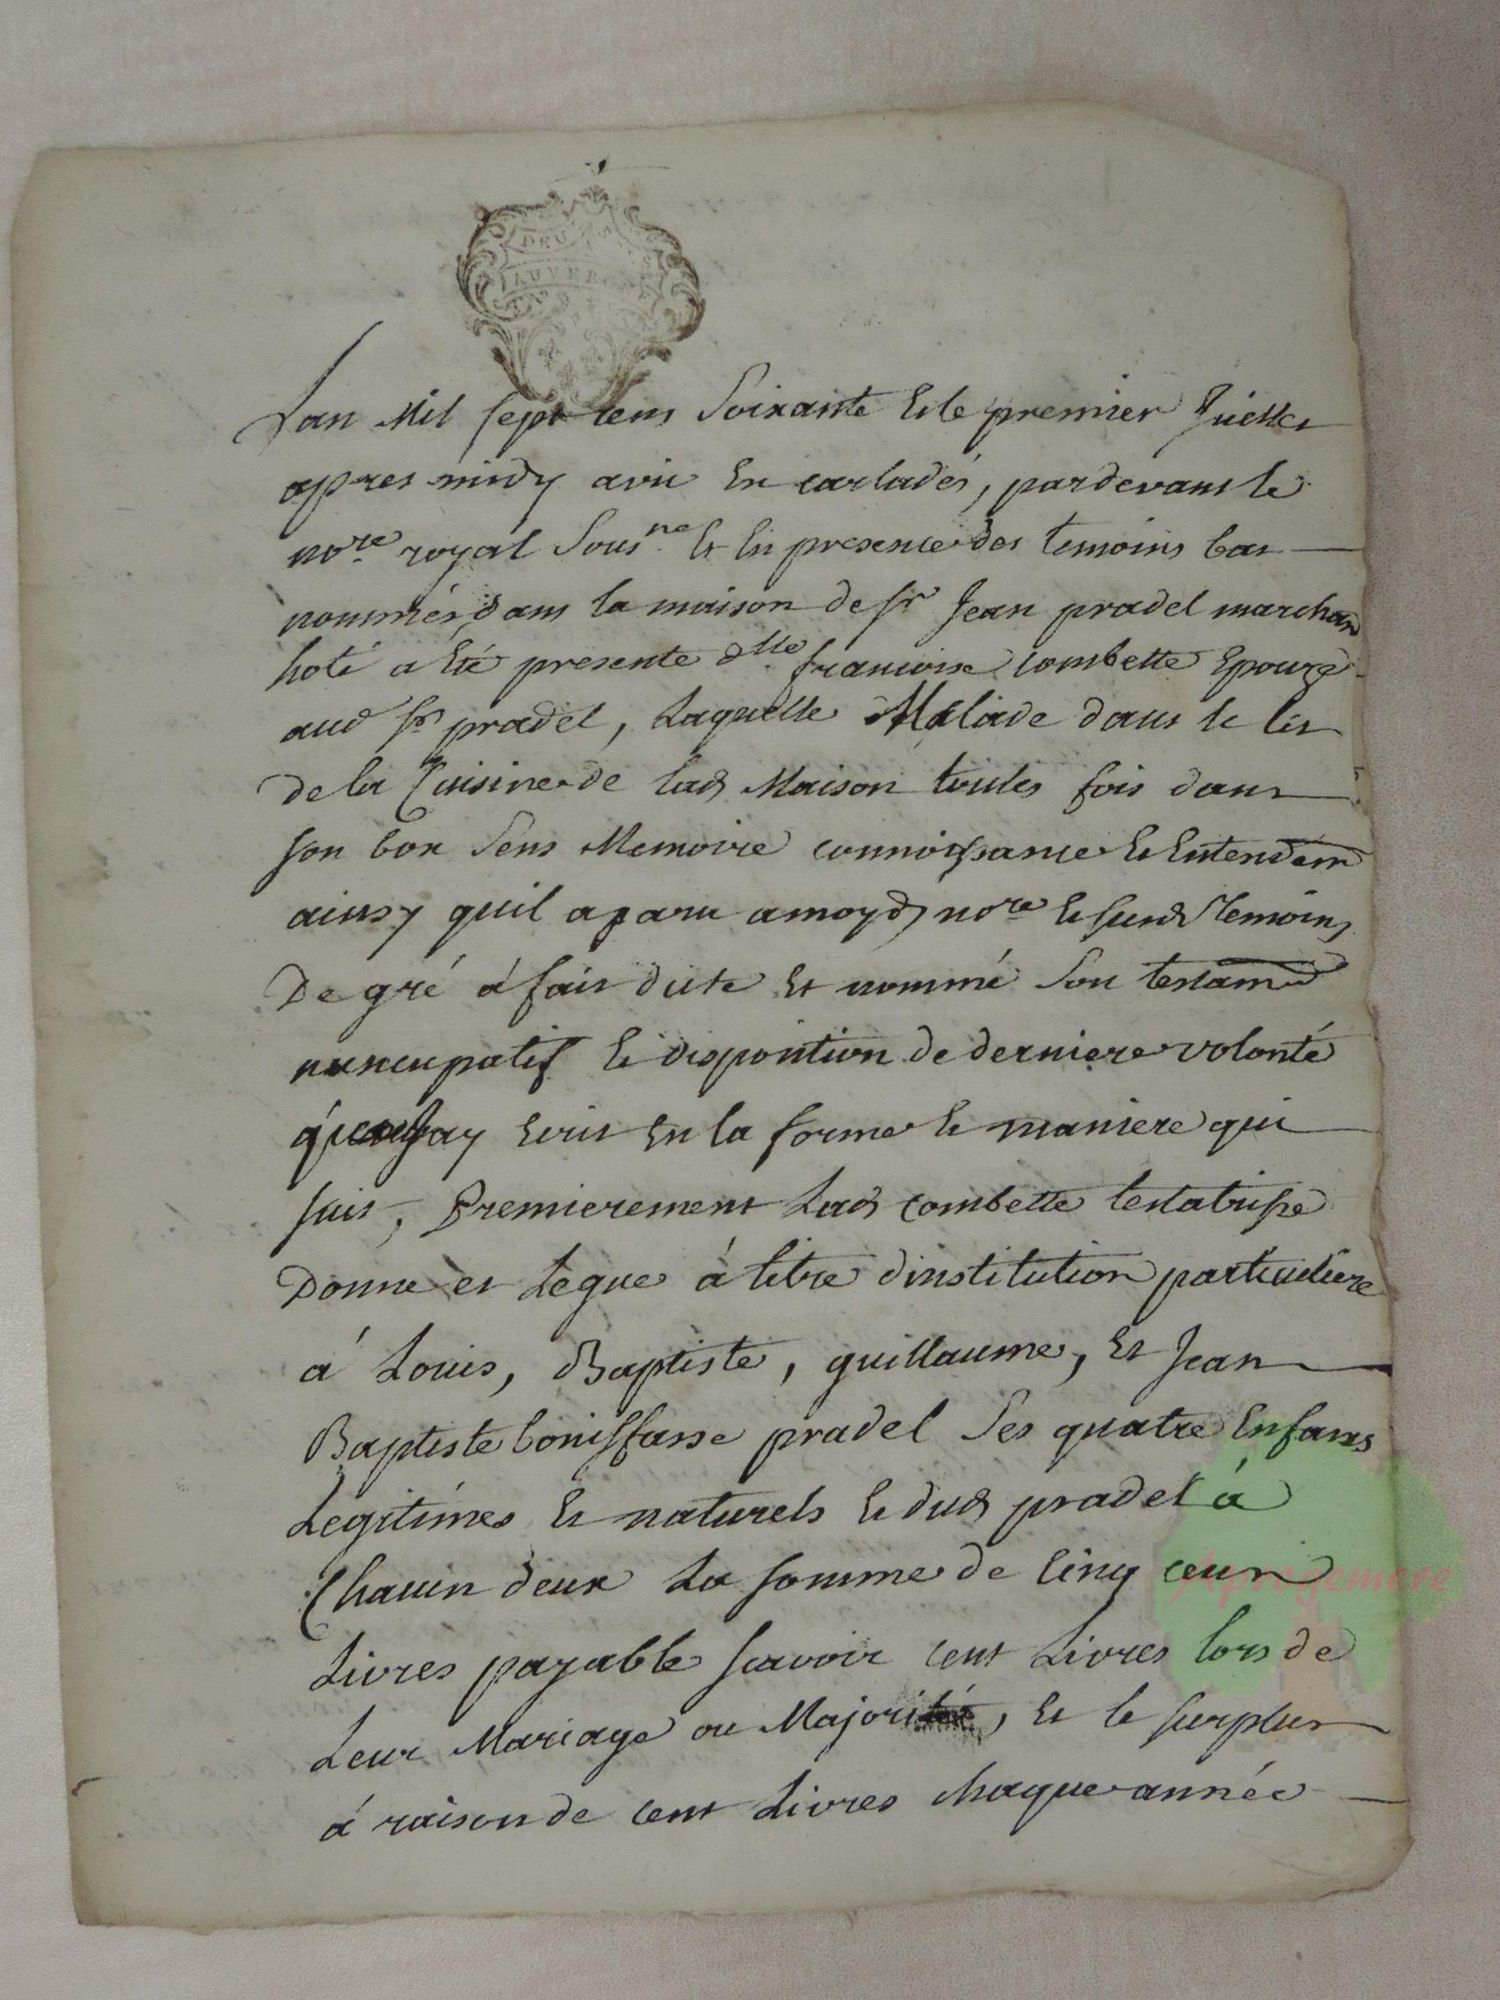 DEUX
AUVERGNE
Lan Mil sept cens Soixante & le premier Juillet
apres midy a vic En carladés, pardevant le
nore. royal Sousne. & En presence des temoins bas
nommés dans la maison de sr Jean pradel marchan
hote a Eté presente dlle francoise combette Epouze
aud sr pradel, Laquelle Malade dans le lit
de la Cuisine de lad Maison toutes fois dans
son bon Sens Memoire connoissance & Entendem
ainsy quil aparu amoyd nore & susd Temoins
De gré á fait dicté Et nommé Son testamt
nuncupatif & disposition de derniere volonté
Ecrit En la forme & maniere qui
suit, Premierement Lad combette testatrisse
Donne et Legue á titre dinstitution particuliere
á Louis, Baptiste, guillaume, Et Jean
Baptiste boniffasse pradel Ses quatre Enfans
Legitimes & naturels & dud pradel á
Chacun deux La somme de Cinq cent
Livres payable scavoir cent Livres lors de
Leur Mariage ou Majorité, Et le surplus
á raison de cent Livres chaque année
Aprogemere